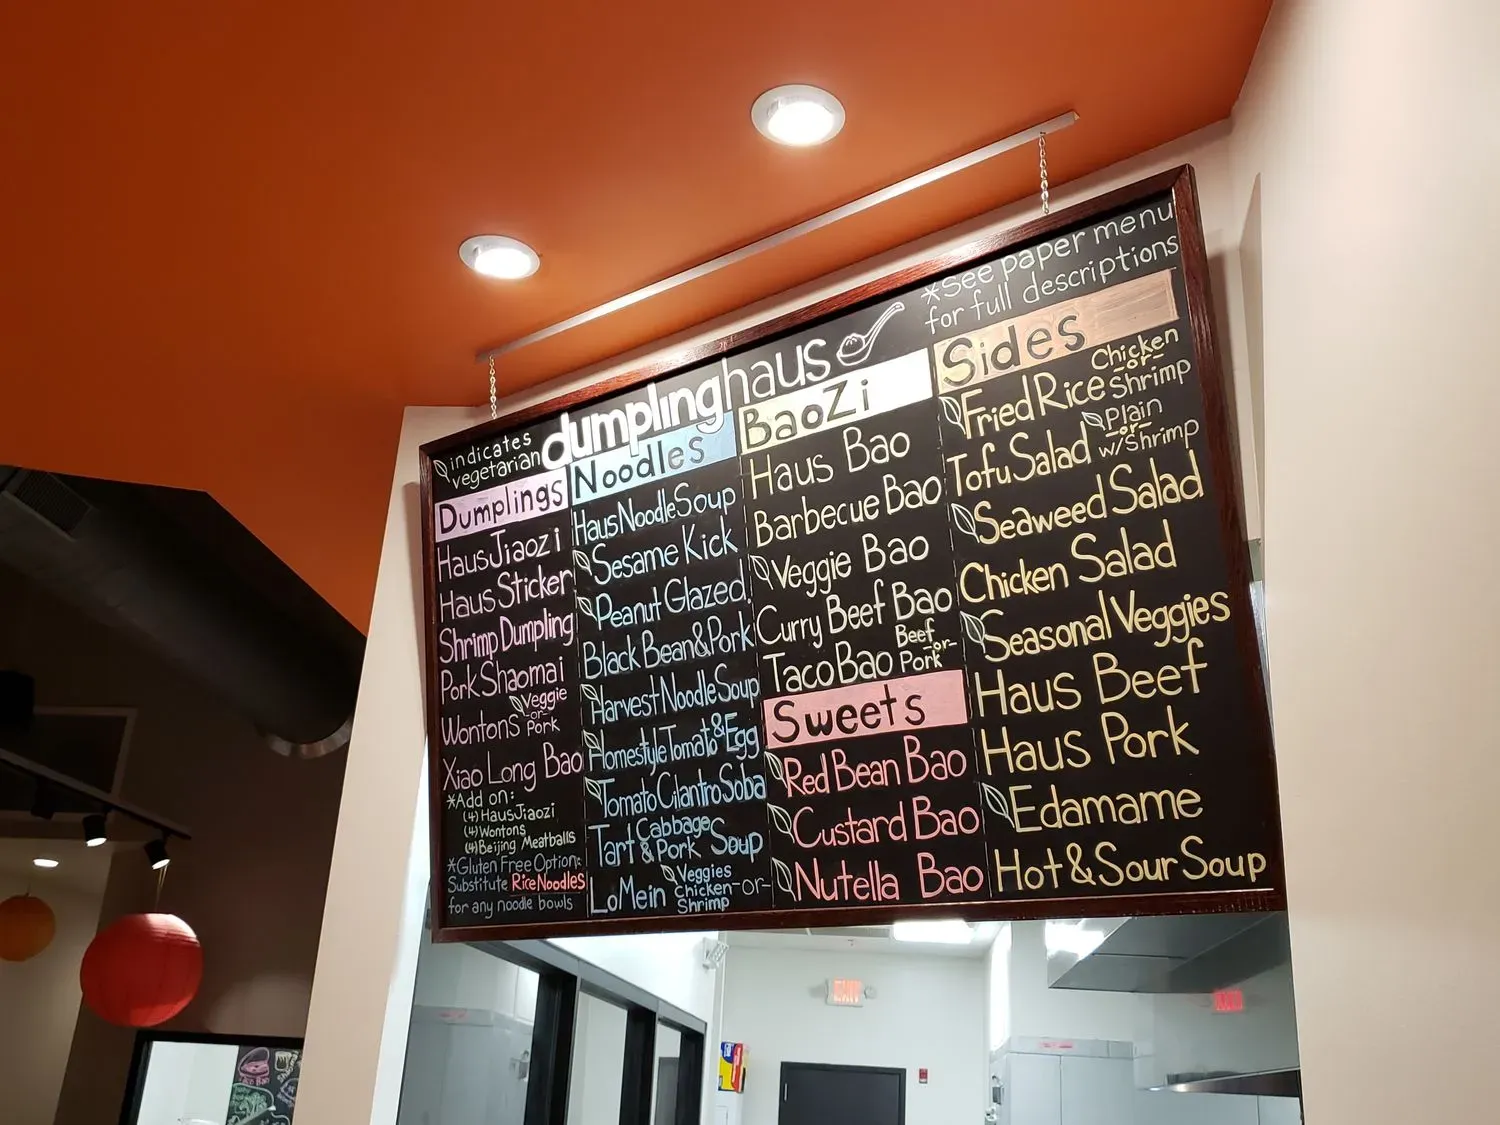 indicates
vegetarian
dumplinghaus
*See paper menu
for full descriptions
Dumplings
Haus Jiaozi
Haus Sticker
Shrimp Dumpling
Pork Shaomai
Wontons Veggie -or- Pork
Xiao Long Bao
*Add on:
(4) Haus Jiaozi
(4) Wontons
(4) Beijing Meatballs
*Gluten Free Option:
Substitute Rice Noodles
for any noodle bowls
Noodles
Haus Noodle Soup
Sesame Kick
Peanut Glazed
Black Bean & Pork
Harvest Noodle Soup
Homestyle Tomato & Egg
Tomato Cilantro Soba
Tart Cabbage & Pork Soup
Lo Mein Veggies Chicken -or- Shrimp
BaoZi
Haus Bao
Barbecue Bao
Veggie Bao
Curry Beef Bao
Taco Bao Beef -or- Pork
Sweets
Red Bean Bao
Custard Bao
Nutella Bao
Sides
Fried Rice Chicken -or- Shrimp
Tofu Salad Plain -or- w/Shrimp
Seaweed Salad
Chicken Salad
Seasonal Veggies
Haus Beef
Haus Pork
Edamame
Hot & Sour Soup